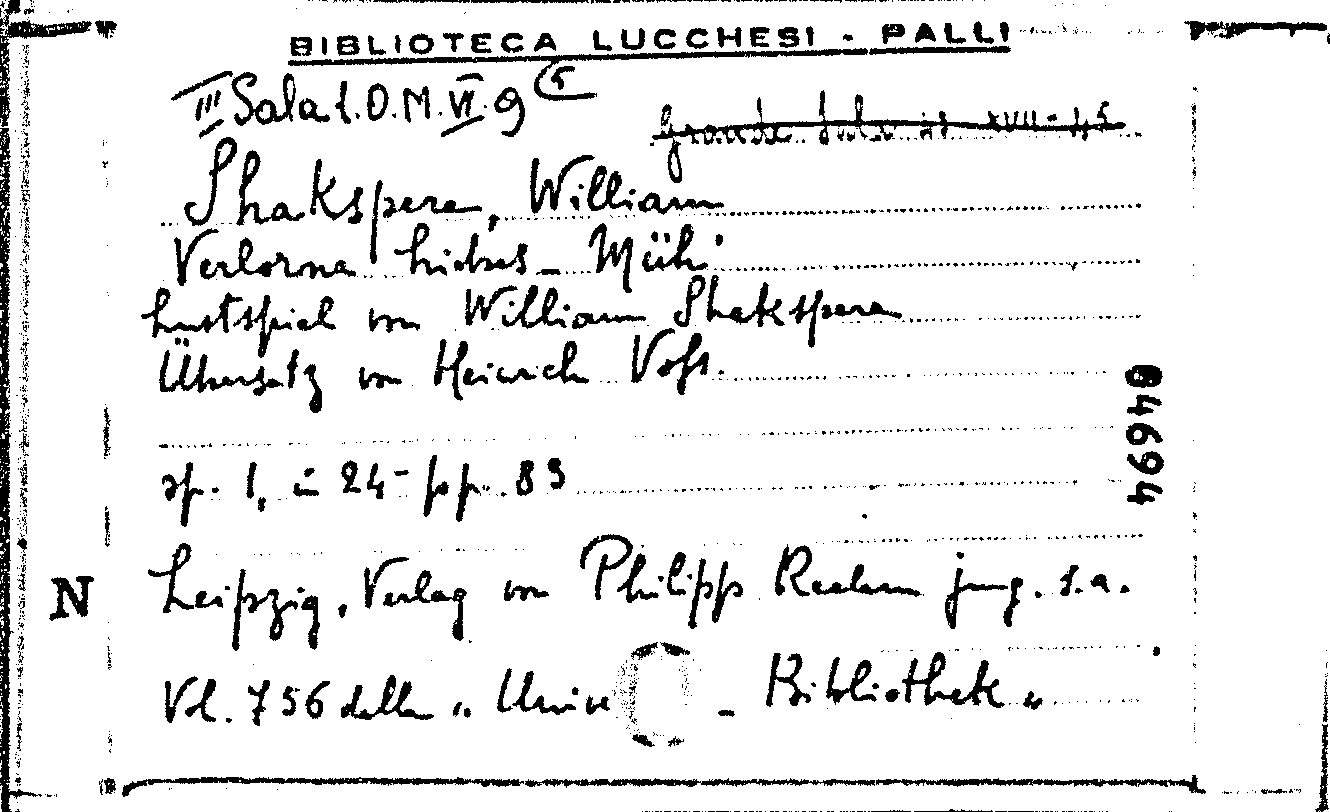 BIBLIOTECA LUCCHESI - PALLI
III Sala L.O.M. VI. 9 (5
Grande Sala 21 XVII - 45
Shakspere, William
Verlorne Liebes - Müh'
Lustspiel von William Shakspere
Übersetz von Heinrich Voss.
sp. 1, in 24 - pp. 83
04994
Leipzig, Verlag von Philipp Reclam jung. s.a.
N
Vol. 756 della „ Unive - Bibliothek „